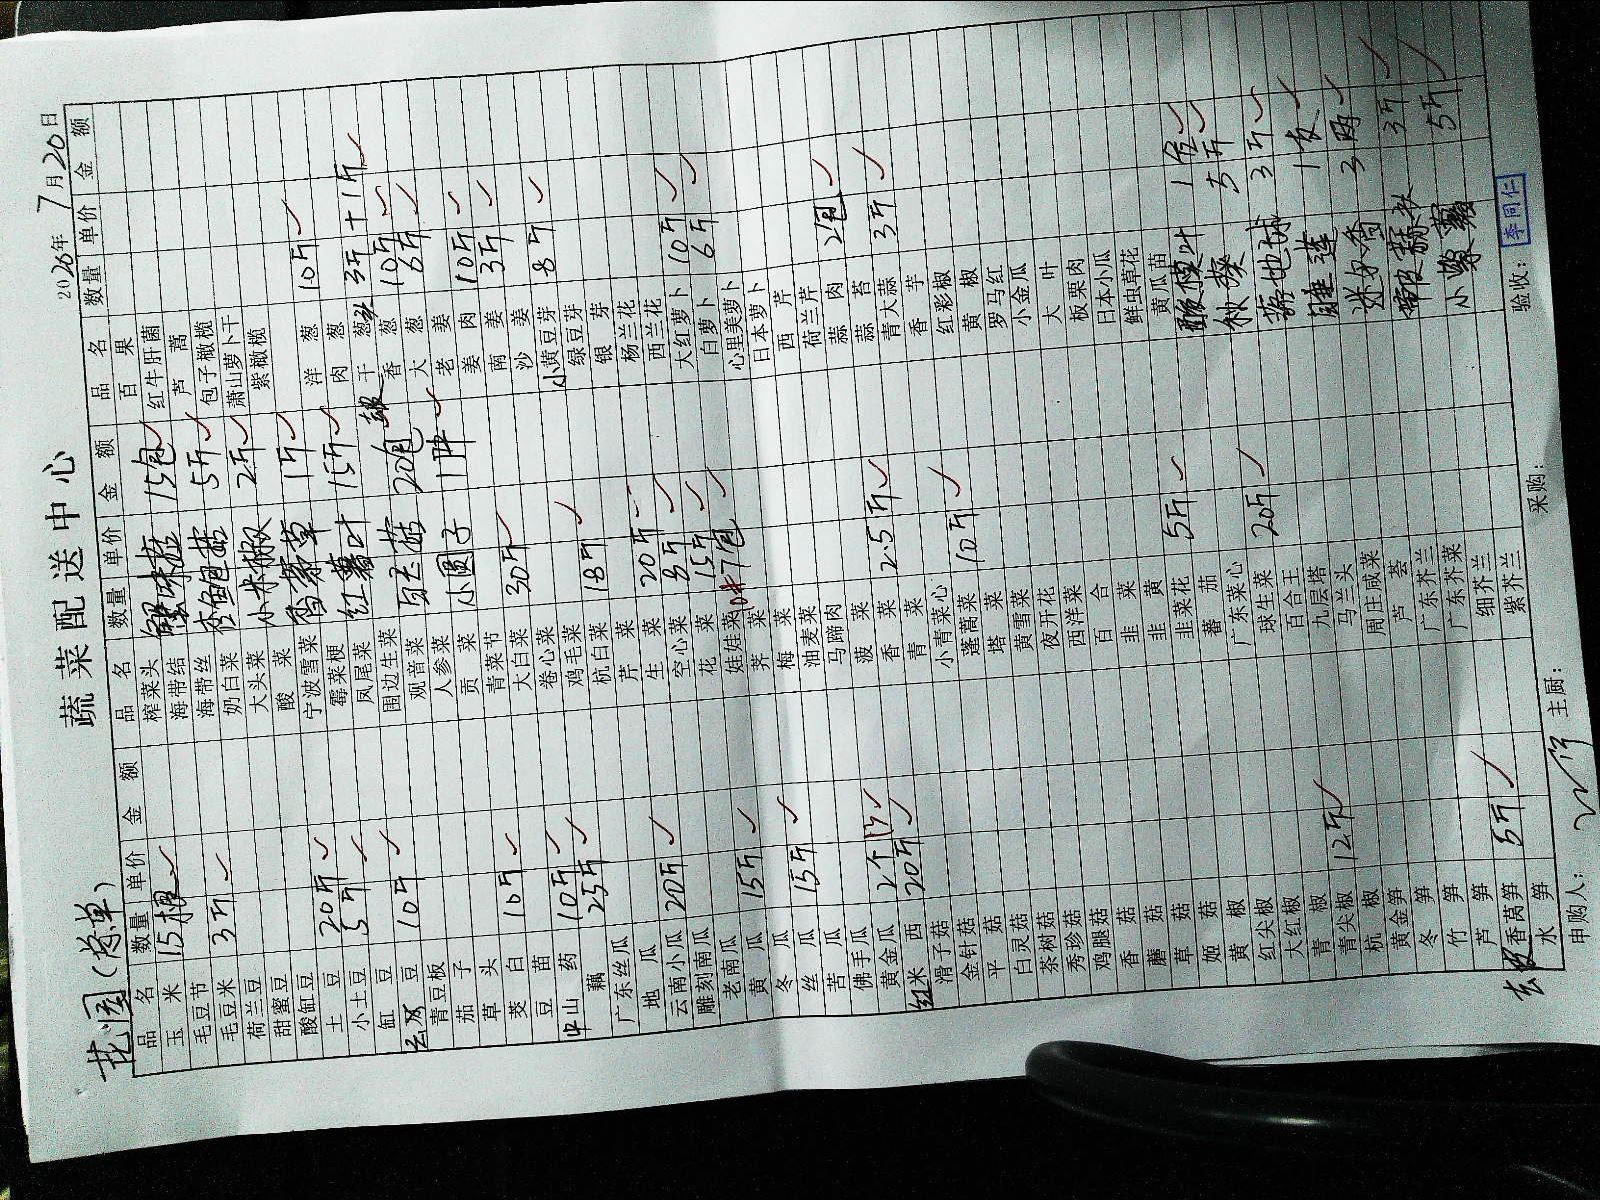 蔬菜配送中心
花园(总单)
2026年 7月20日
品名 数量 单价 金额 品名 数量 单价 金额 品名 数量 单价 金额
玉米 15根
毛豆节
毛豆米 3斤
荷兰豆
甜蜜豆
酸缸豆
土豆 20斤
小土豆 5斤
缸豆 10斤
豆
青豆板
茄子
草头
茭白 10斤
豆苗
山药 10斤
藕 25斤
广东丝瓜
地瓜
云南小瓜 20斤
雕刻南瓜
老南瓜
黄瓜 15斤
冬瓜
丝瓜 15斤
苦瓜
佛手瓜
黄金瓜 2个
红米西 20斤
滑子菇
金针菇
平菇
白灵菇
茶树菇
秀珍菇
鸡腿菇
香菇
蘑菇
草菇
姬菇
黄椒
红尖椒
大红椒
青椒
青尖椒 12斤
杭椒
黄金笋
冬笋
竹笋
芦笋
去皮香莴笋 5斤
水笋
榨菜头
蟹味菇 15包
海带结
海带丝
杏鲍菇 5斤
奶白菜
小米椒 2斤
大头菜
酸菜
香茅草 1斤
宁波雪菜
霉菜梗
红薯叶 15斤
凤尾菜
围边生菜
白玉菇 20包
观音菜
人参菜
小圆子
贡菜
青菜节
大白菜 30斤
卷心菜
鸡毛菜
杭白菜 18斤
芹菜
生菜 20斤
空心菜 8斤
花菜 15斤
娃娃菜 7包
荠菜
梅菜
油麦菜
马蹄肉
菠菜
香菜 2.5斤
青菜
小青菜心
蓬蒿菜 10斤
塔菜
黄雪菜
夜开花
西洋菜
百合
韭菜
韭黄
韭菜花 5斤
蕃茄
广东菜心
球生菜 20斤
百合王
九层塔
马兰头
周庄咸菜
芦荟
广东芥兰
广东芥菜
细芥兰
紫芥兰
百果
红牛肝菌
芦蒿
包子橄榄
萧山萝卜干
紫橄榄
洋葱 10斤
肉葱
干葱 3斤+1斤
香葱 10斤
大葱 6斤
老姜
姜肉 10斤
南姜 3斤
沙姜
小黄豆芽 8斤
绿豆芽
银芽
杨兰花
西兰花
大红萝卜 10斤
白萝卜 6斤
心里美萝卜
日本萝卜
西芹
荷兰芹
蒜肉 2包
蒜苔
青大蒜 3斤
香芋
红彩椒
黄椒
罗马红
小金瓜
大叶
板栗肉
日本小瓜
鲜虫草花
黄瓜苗
酸模叶 1盒
秋葵 5斤
3斤
睡莲 1支
迷迭香
3斤
5斤
申购人：
主厨：
采购：
验收： 李同仁